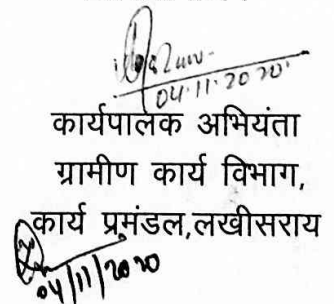 04.11.2020
कार्यपालक अभियंता
ग्रामीण कार्य विभाग,
कार्य प्रमंडल,लखीसराय
04/11/2020